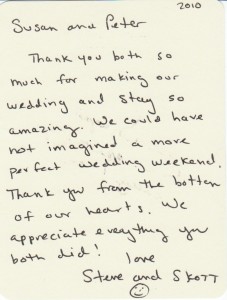 2010
Susan and Peter
Thank you both so
much for making our
wedding and stay so
amazing. We could have
not imagined a more
perfect wedding weekend.
Thank you from the botten
of our hearts. We
appreciate everything you
both did!
love
Steve and Skott